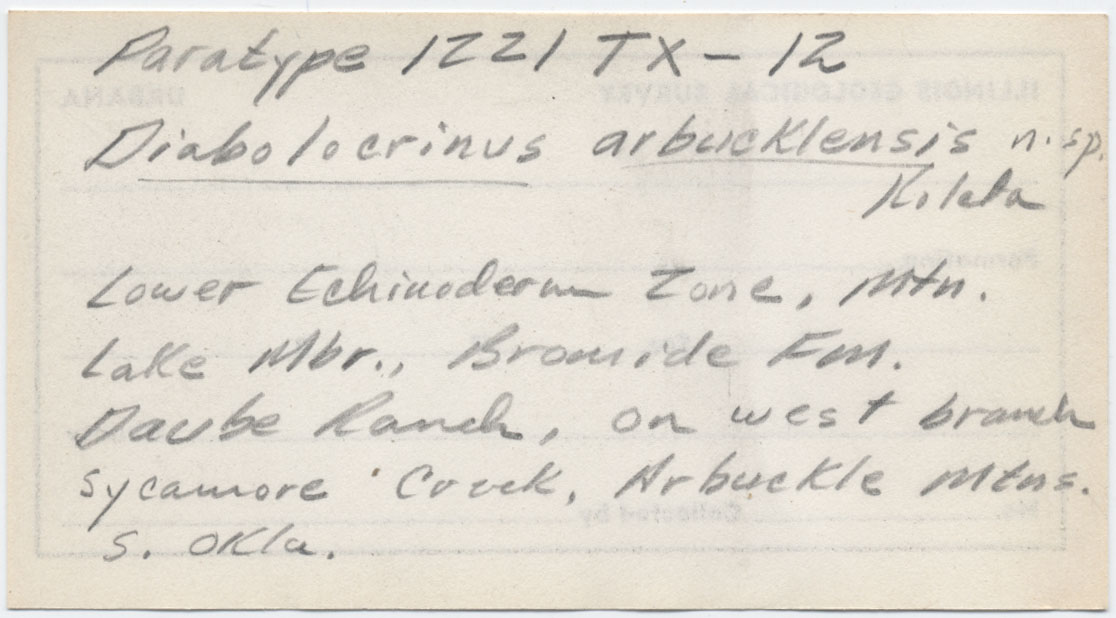 Paratype 1221 TX-12
Diabolocrinus arbucklensis n. sp.
Kolata
Lower Echinoderm Zone, Mtn.
Lake Mbr., Bromide Fm.
Daube Ranch, on west branch
Sycamore Creek, Arbuckle Mtns.
S. Okla.
ILLINOIS GEOLOGICAL SURVEY URBANA
Formation
No. Collected by